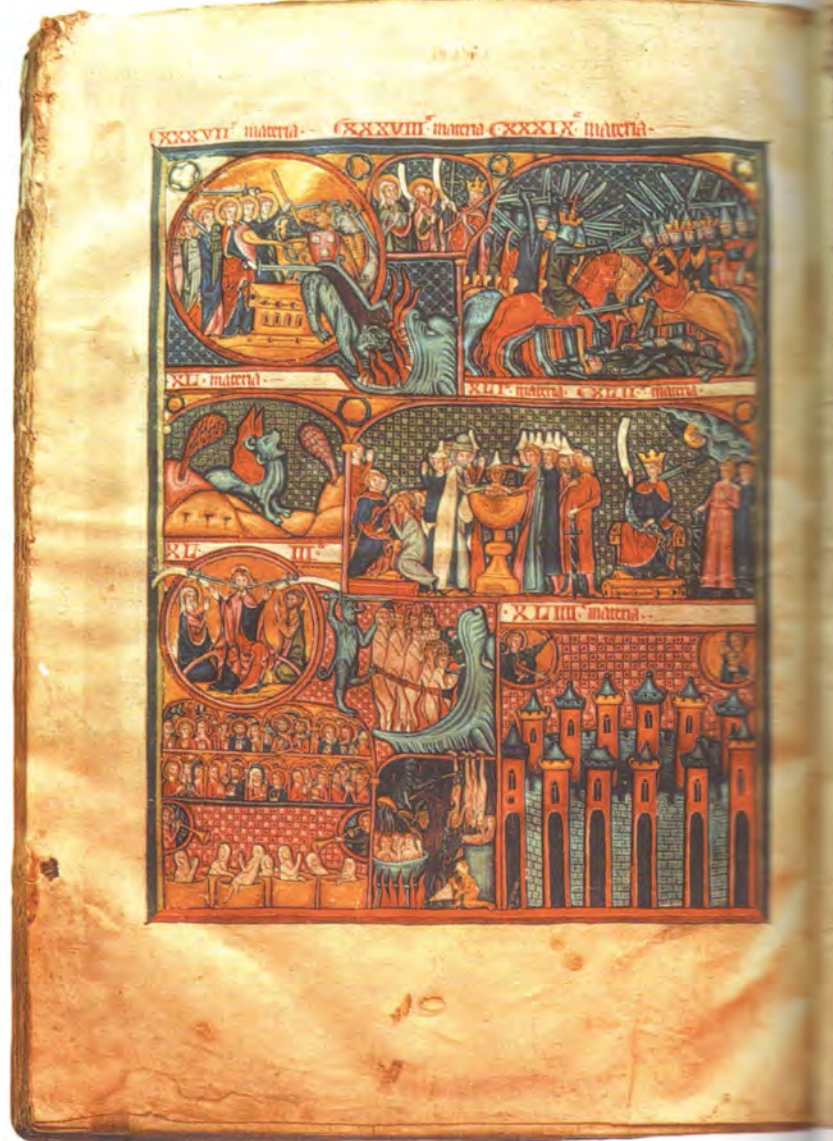 XXXVIIª materia · XXXVIIIª materia · XXXIXª materia ·
XL · materia ·
XLIª materia · XLIIª materia ·
XL · IIIª
· XLIIIIª materia ·